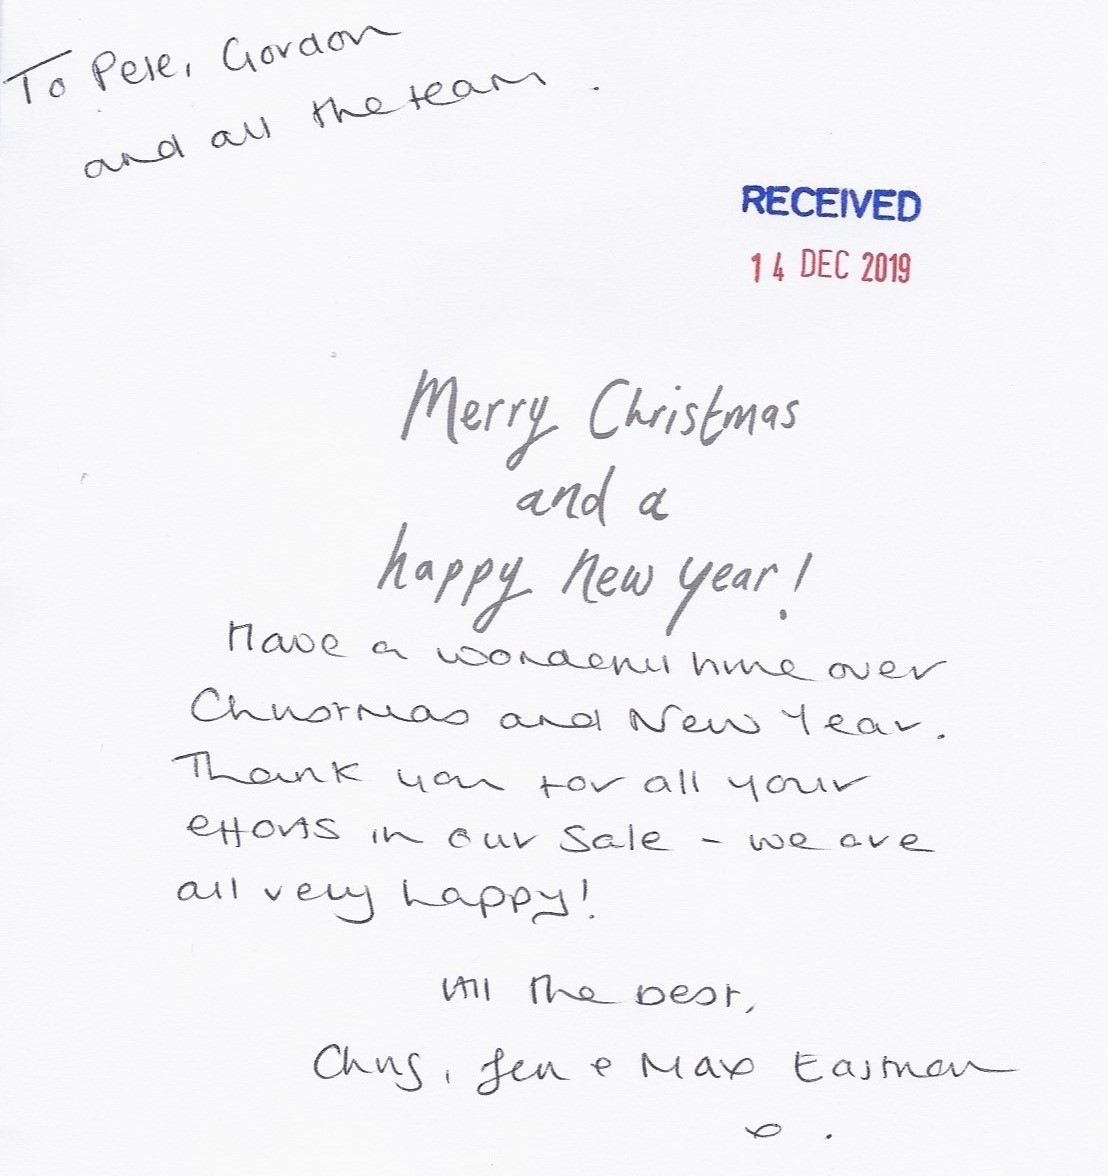 To Pete, Gordon
and all the team.
RECEIVED
14 DEC 2019
Merry Christmas
and a
happy New year!
Have a wonderful time over
Christmas and New Year.
Thank you for all your
efforts in our Sale - we are
all very happy!
All the best,
Chris, Jen & Max Eastman
x.